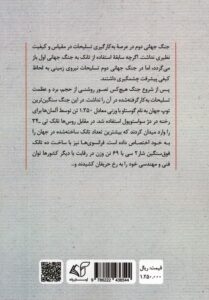 جنگ جهانی دوم در عرصهٔ به‌کارگیری تسلیحات در مقیاس و کیفیت
نظیری نداشت. اگرچه سابقهٔ استفاده از تانک به جنگ جهانی اول باز
می‌گردد، اما در جنگ جهانی دوم تسلیحات نیروی زمینی به لحاظ
کیفی پیشرفت چشمگیری داشتند.
پس از شروع جنگ هیچ‌کس تصور روشنی از حجم، برد و عظمت
تسلیحات به‌کار گرفته‌شده در آن را نداشت. این جنگ سنگین‌ترین
توپ جهان به نام گوستاو با وزنی معادل ۱۳۵۰ تن توسط آلمان‌ها برای
رخنه در دژ سواستوپول استفاده شد. در مقابل روس‌ها تانک تی ـ۳۴
را وارد میدان کردند که بیشترین تعداد تانک ساخته‌شده در جهان را
به خود اختصاص داده است. فرانسوی‌ها نیز با ساخت ده تانک
فوق‌سنگین شار۲ سی با ۶۹ تن وزن در رقابت با دیگر کشورها توان
فنی و مهندسی خود را به رخ حریفان کشیدند و...
قیمت: ریال
۱,۲۵۰,۰۰۰
9 786222 436544